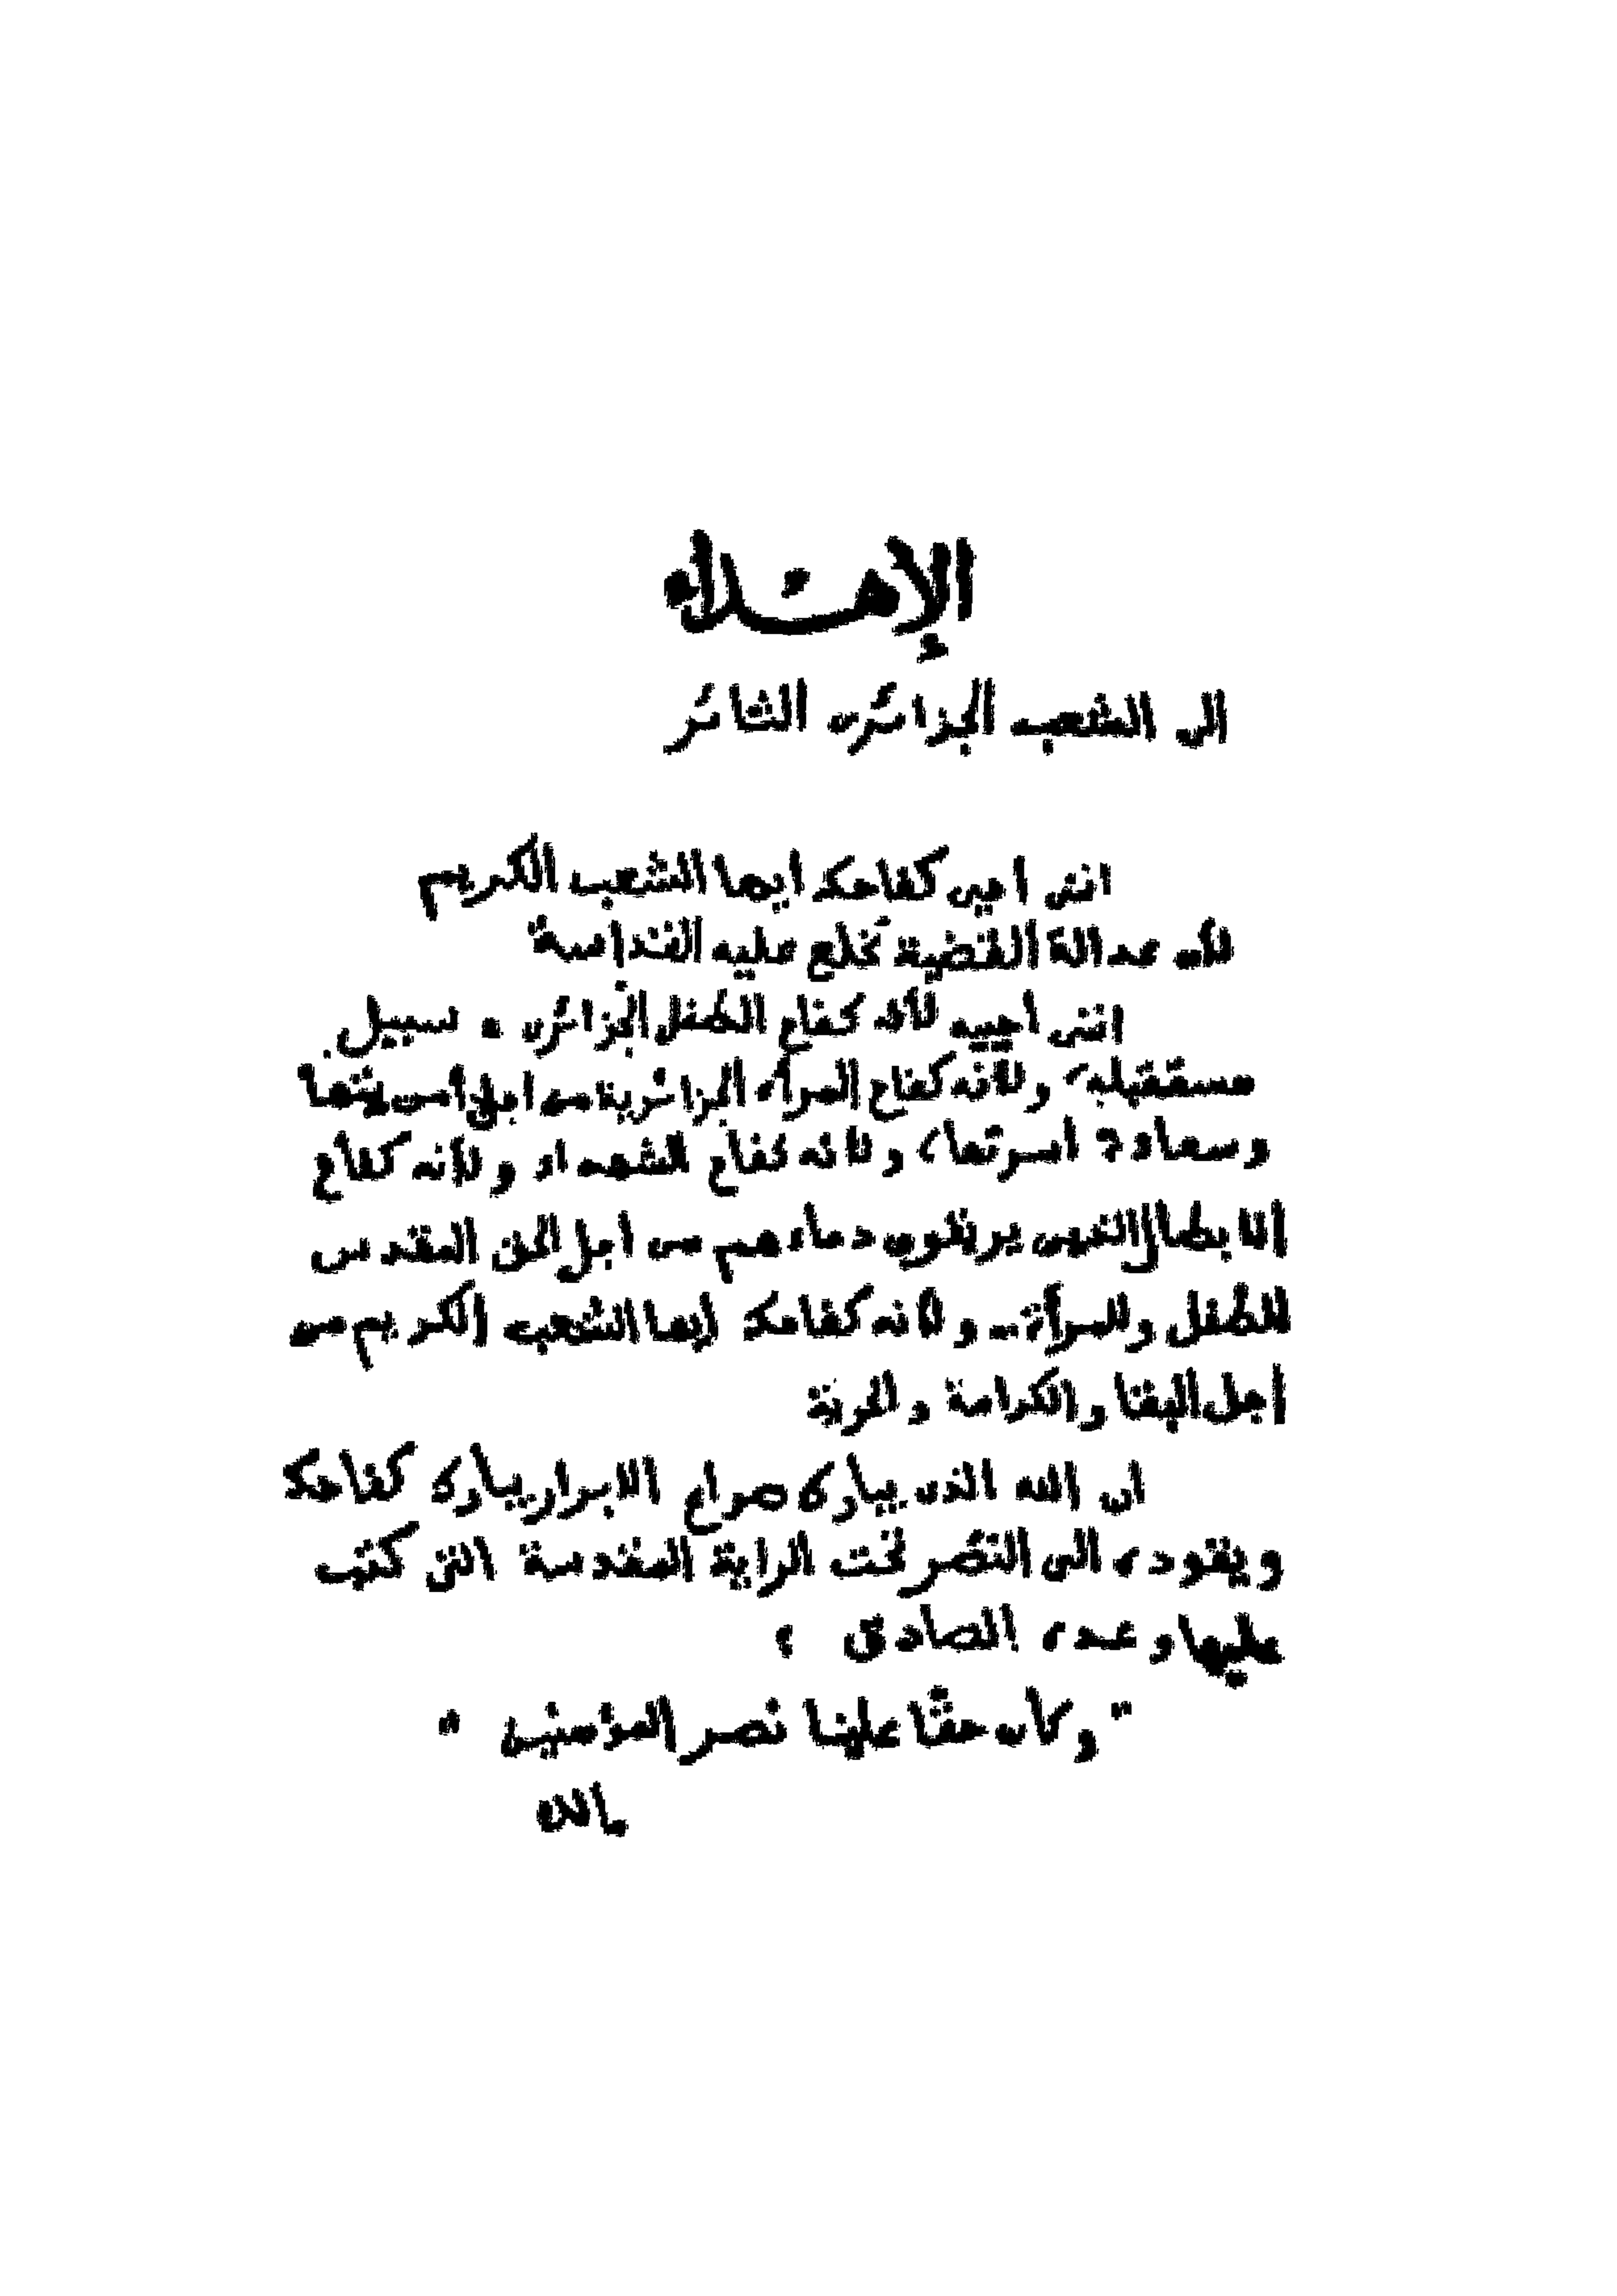 الإهداء
الى الشعب الجزائرى الثائر
اننى احيى كفاحك ايها الشعب الكريم
لأن عدالة القضية تخلع عليه القداسة
اننى أحييه لأنه كفاح الطفل الجزائرى . سبيل
مستقبله، ولأنه كفاح المرأة الجزائرية من اجل أمن بيتها
وسعادة أسرتها، ولانه كفاح الشهداء ولأنه كفاح
الابطال الذين يريقون دماءهم من اجل الحق المقدس
للطفل وللمرأة.. ولانه كفاحك ايها الشعب الكريم من
اجل البقا والكرامة والحرية
ان الله الذى يبارك صراع الابرار يبارك كفاحك
ويقوده الى النصر تحت الراية المقدسة التى كتب
عليها وعده الصادق :
" وكان حقّا علينا نصر المؤمنين "
مالك